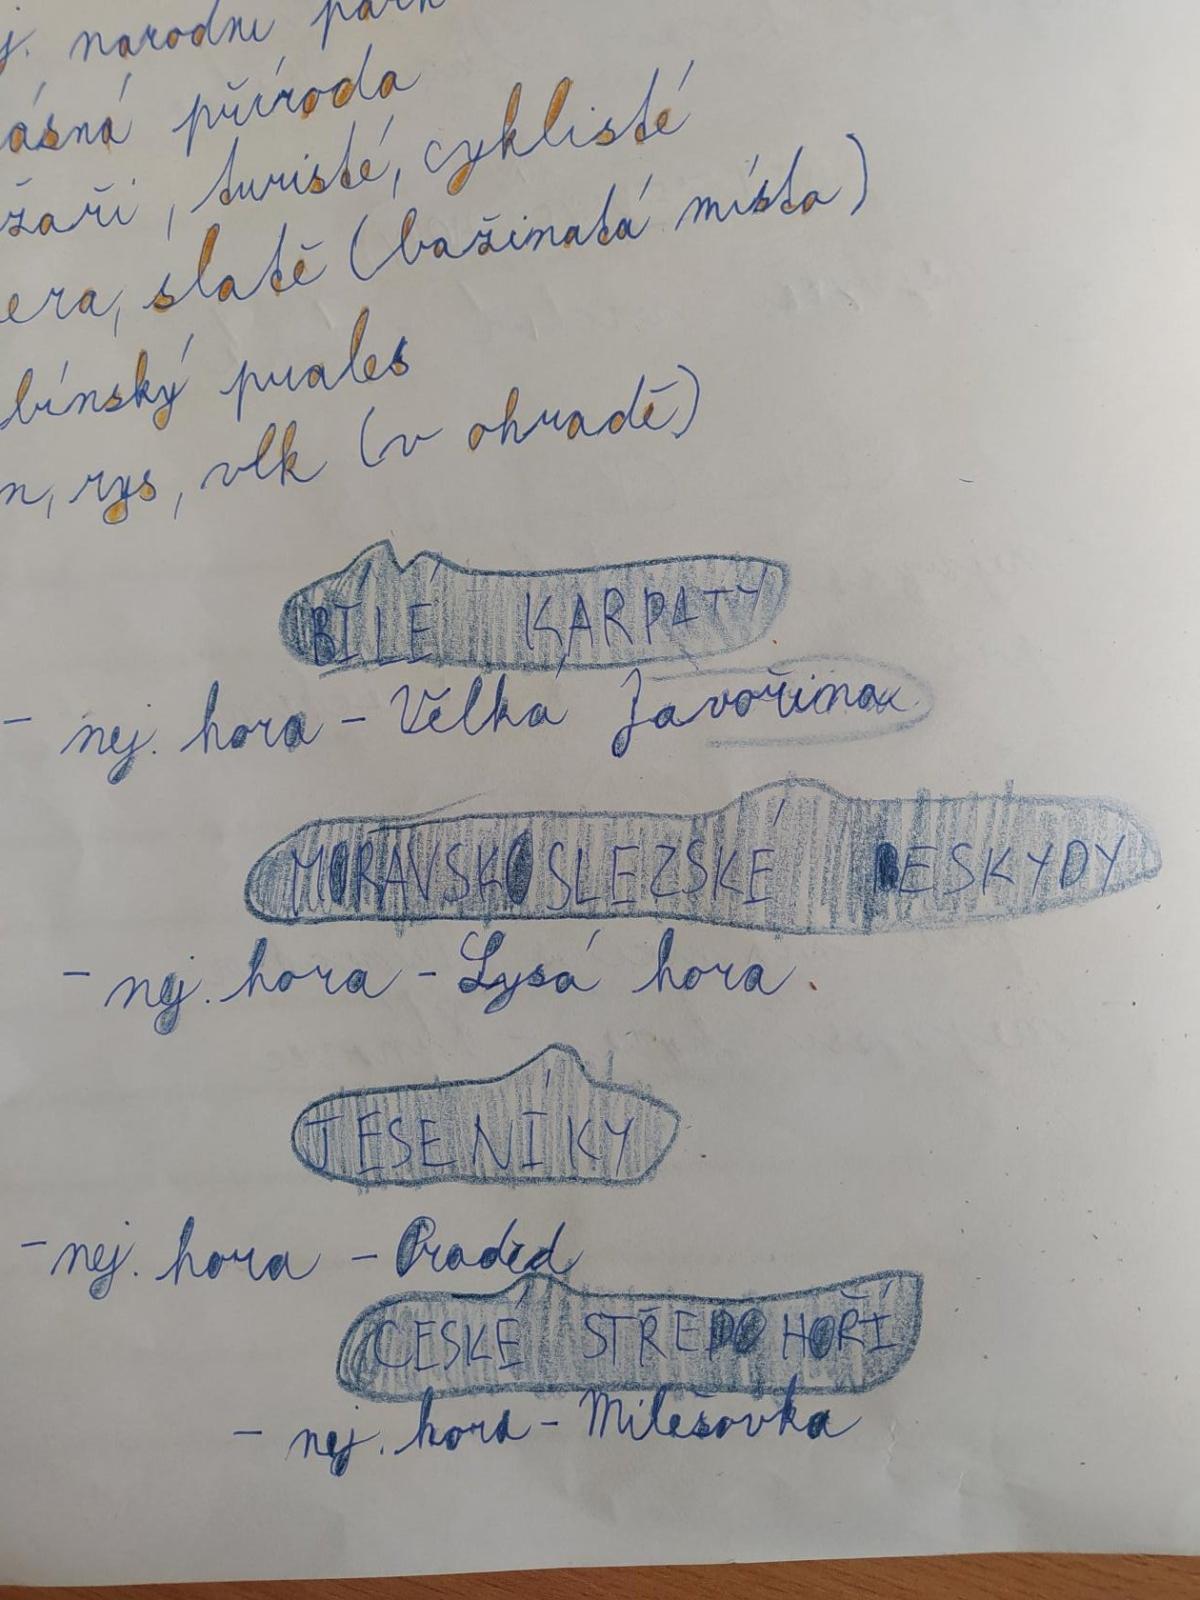 j. národní park
ásná příroda
žaři, turisté, cyklisté
era, slatě (bažinatá místa)
bínský prales
n, rys, vlk (v ohradě)
BÍLÉ KARPATY
- nej. hora - Velká Javořina
MORAVSKOSLEZSKÉ BESKYDY
- nej. hora - Lysá hora.
JESENÍKY
- nej. hora - Praděd
ČESKÉ STŘEDOHOŘÍ
- nej. hora - Milešovka